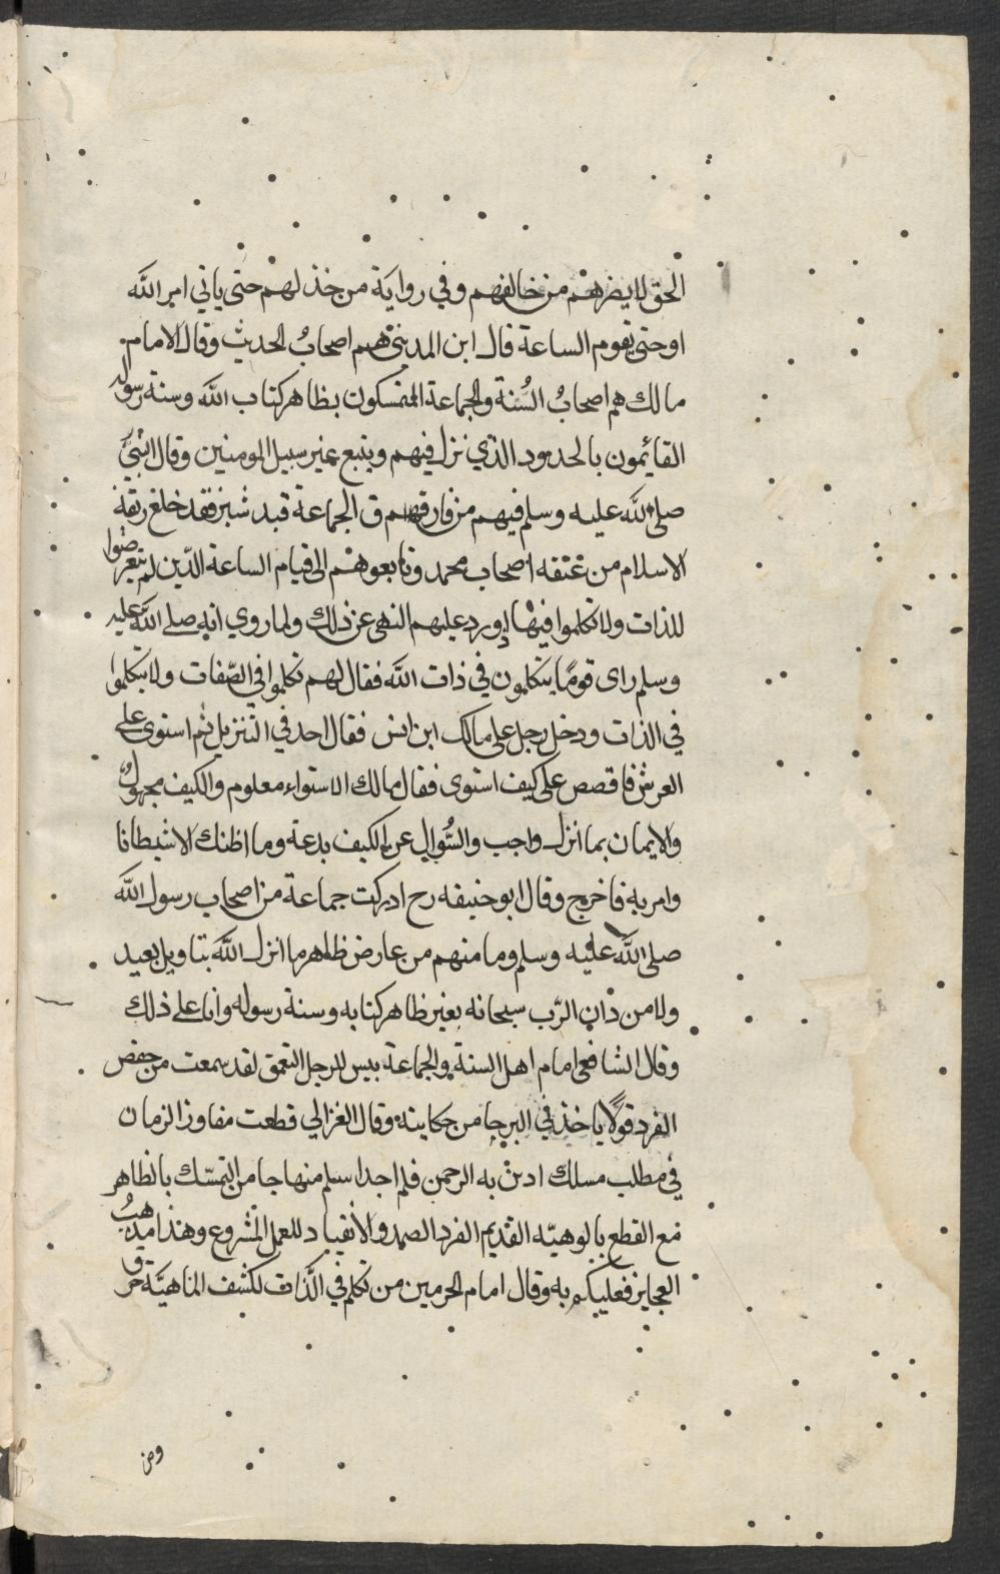 الحق لا يضرهم من خالفهم وفي رواية من خذلهم حتى ياتي امر الله
او حتى تقوم الساعة قال ابن المديني هم اصحابُ الحديث وقال الامام
مالك هم اصحابُ السُنة والجماعة المتمسكون بظاهر كتاب الله وسنة رسوله
القائمون بالحدود الذي نزل فيهم ويتبع غير سبيل المومنين وقال النبيّ
صلى الله عليه وسلم فيهم من فارق الجماعة قيد شبر فقد خلع ربقة
الاسلام من عنقه اصحاب محمد وتابعوهم الى قيام الساعة الذين لم يتعرضوا
للذات ولا تكلموا فيها لورد عليهم النهى عن ذلك ولما روي انه صلى الله عليه
وسلم راى قومًا يتكلمون في ذات الله فقال لهم تكلموا في الصّفات ولا تتكلموا
في الذات ودخل رجل على مالك ابن انس فقال احد في التنزيل ثم استوى على
العرش فاقصص على كيف استوى فقال مالك الاستواء معلوم والكيف مجهولٌ
والايمان بما انزل واجب والسُّوال عن الكيف بدعة وما اظنك الا شيطانا
وامر به فاخرج وقال ابو حنيفه رح ادركت جماعة من اصحاب رسول الله
صلى الله عليه وسلم وما منهم من عارض ظاهر ما انزل الله بتاويل بعيد
ولا من دان الرّب سبحانه بغير ظاهر كتابه وسنة رسوله وانا على ذلك
وقال الشافعى امام اهل السنة والجماعة بيس للرجل التعمق لقد سمعت من حفص
الفرد قولًا ياخذني من حكايته وقال الغزالي قطعت مفاوز الزمان
في مطلب مسلك ادين به الرحمن فلم اجد اسلم منهاجا من التمسّك بالظاهر
مع القطع بالوهيّه القديم الفرد الصمد والانقياد للعمل المشروع وهذا مذهبُ
العجايز فعليكم به وقال امام الحرمين من تكلم في الذات لكشف الماهيّة خرق
ومن